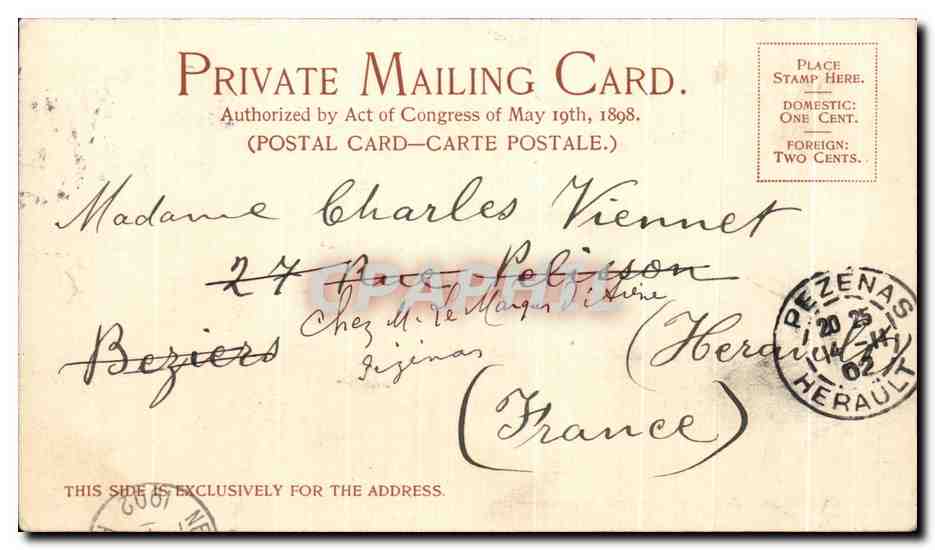 PRIVATE MAILING CARD.
Authorized by Act of Congress of May 19th, 1898.
(POSTAL CARD—CARTE POSTALE.)
PLACE
STAMP HERE.
DOMESTIC:
ONE CENT.
FOREIGN:
TWO CENTS.
Madame Charles Viennet
27 Rue Pelisson
Chez M. Le Marquis
Beziers
(Herault)
(France)
PEZENAS
20 25
14 -11
02
HERAULT
THIS SIDE IS EXCLUSIVELY FOR THE ADDRESS.
1902
NE
CPAPHIL